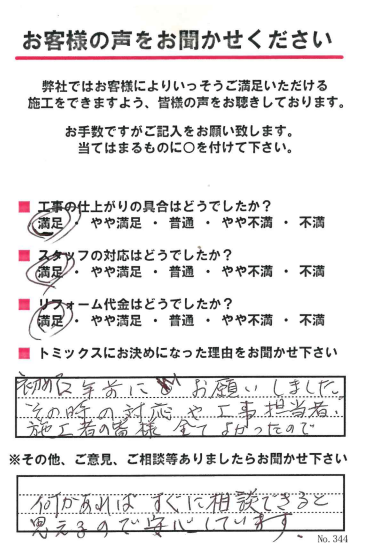 お客様の声をお聞かせください
弊社ではお客様によりいっそうご満足いただける
施工をできますよう、皆様の声をお聴きしております。
お手数ですがご記入をお願い致します。
当てはまるものに○を付けて下さい。
■ 工事の仕上がりの具合はどうでしたか？
満足 ・ やや満足 ・ 普通 ・ やや不満 ・ 不満
■ スタッフの対応はどうでしたか？
満足 ・ やや満足 ・ 普通 ・ やや不満 ・ 不満
■ リフォーム代金はどうでしたか？
満足 ・ やや満足 ・ 普通 ・ やや不満 ・ 不満
■ トミックスにお決めになった理由をお聞かせ下さい
年前に お願いしました。
その時の対応や工事担当者、
施工者の皆様 全てよかったので
※その他、ご意見、ご相談等ありましたらお聞かせ下さい
何かあれば すぐに相談できると
思えるので安心しています。
No. 344